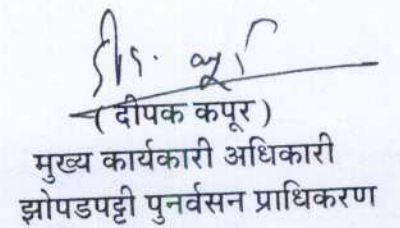 ( दीपक कपूर )
मुख्य कार्यकारी अधिकारी
झोपडपट्टी पुनर्वसन प्राधिकरण